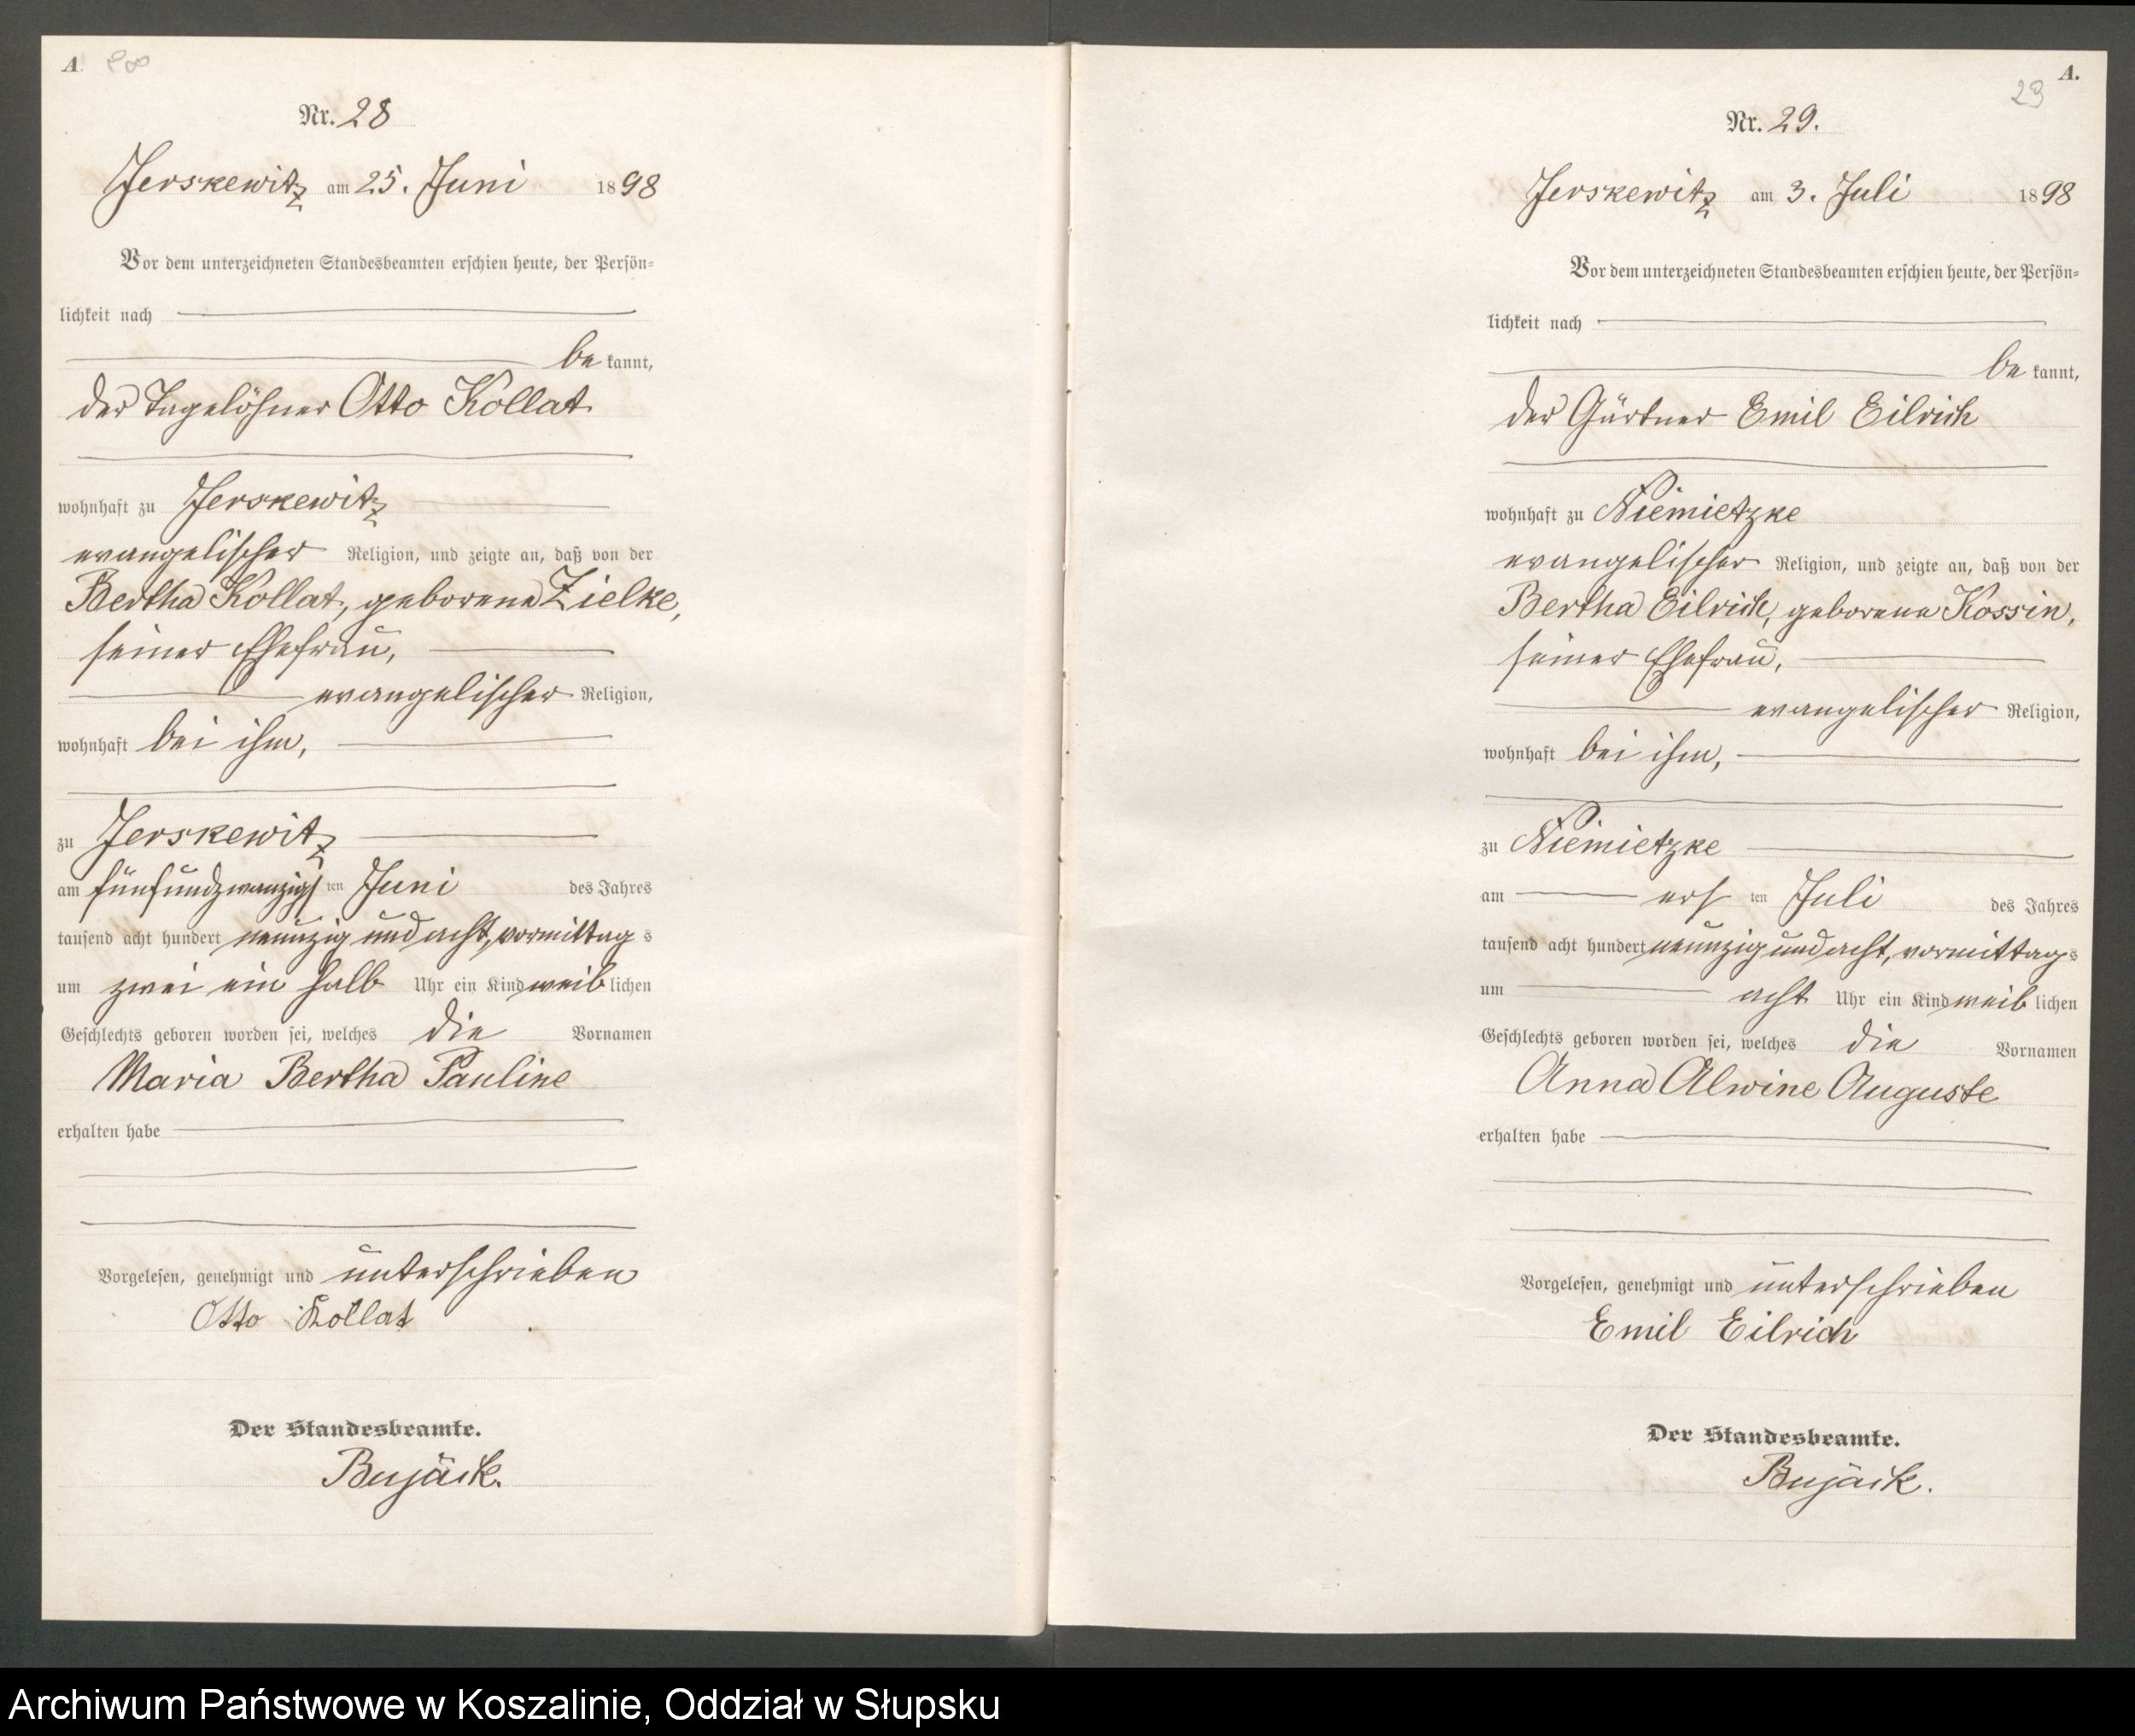 A.
Nr. 28
Jerskewitz am 25. Juni 1898
Vor dem unterzeichneten Standesbeamten erschien heute, der Persön=
lichkeit nach
be kannt,
der Tagelöhner Otto Kollat
wohnhaft zu Jerskewitz
evangelischer Religion, und zeigte an, daß von der
Bertha Kollat, geborene Zielke,
seiner Ehefrau,
evangelischer Religion,
wohnhaft bei ihm,
zu Jerskewitz
am fünfundzwanzigsten Juni des Jahres
tausend acht hundert neunzig und acht, vormittags
um zwei ein halb Uhr ein Kind weiblichen
Geschlechts geboren worden sei, welches die Vornamen
Maria Bertha Pauline
erhalten habe
Vorgelesen, genehmigt und unterschrieben
Otto Kollat
Der Standesbeamte.
Bujäck.
A.
23
Nr. 29.
Jerskewitz am 3. Juli 1898
Vor dem unterzeichneten Standesbeamten erschien heute, der Persön=
lichkeit nach
be kannt,
der Gärtner Emil Eilrich
wohnhaft zu Niemietzke
evangelischer Religion, und zeigte an, daß von der
Bertha Eilrich, geborene Kossin,
seiner Ehefrau,
evangelischer Religion,
wohnhaft bei ihm,
zu Niemietzke
am ersten Juli des Jahres
tausend acht hundert neunzig und acht, vormittags
um acht Uhr ein Kind weiblichen
Geschlechts geboren worden sei, welches die Vornamen
Anna Alwine Auguste
erhalten habe
Vorgelesen, genehmigt und unterschrieben
Emil Eilrich
Der Standesbeamte.
Bujäck.
Archiwum Państwowe w Koszalinie, Oddział w Słupsku